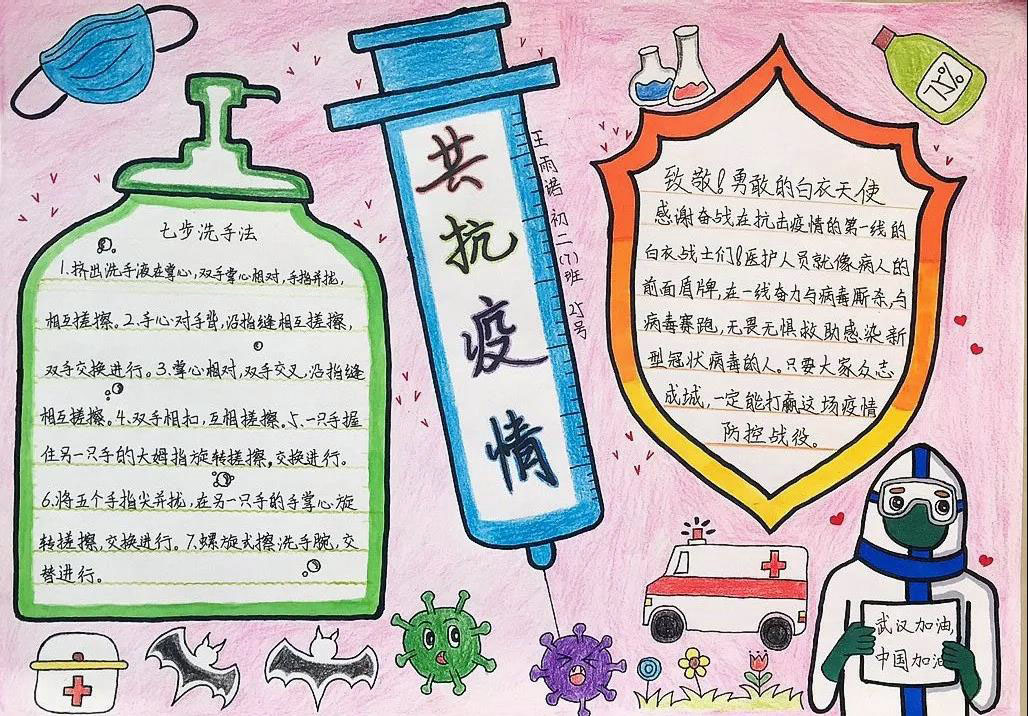 七步洗手法
1.挤出洗手液在掌心,双手掌心相对,手指并拢,
相互搓擦。2.手心对手背,沿指缝相互搓擦,
双手交换进行。3.掌心相对,双手交叉,沿指缝
相互搓擦。4.双手相扣,互相搓擦。5.一只手握
住另一只手的大姆指旋转搓擦,交换进行。
6.将五个手指尖并拢,在另一只手的手掌心旋
转搓擦,交换进行。7.螺旋式擦洗手腕,交
替进行。
共抗疫情
王雨诺 初二(7)班 25号
75%
致敬!勇敢的白衣天使
感谢奋战在抗击疫情的第一线的
白衣战士们!医护人员就像病人的
前面盾牌,在一线奋力与病毒厮杀,与
病毒赛跑,无畏无惧救助感染新
型冠状病毒的人。只要大家众志
成城,一定能打赢这场疫情
防控战役。
武汉加油,
中国加油